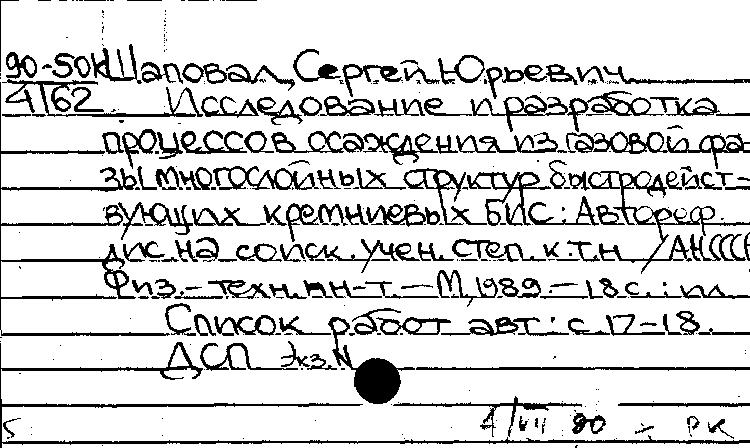 90-50к Шаповал, Сергей Юрьевич
4162 Исследование и разработка
процессов осаждения из газовой фа-
зы многослойных структур быстродейст-
вующих кремниевых БИС: Автореф.
дис. на соиск. учен. степ. к.т.н. /АН СССР
Физ.-техн. ин-т. — М., 1989. — 18 с.: ил.
Список работ авт.: с. 17-18.
ДСП Экз. N
4/VII 90 - РК